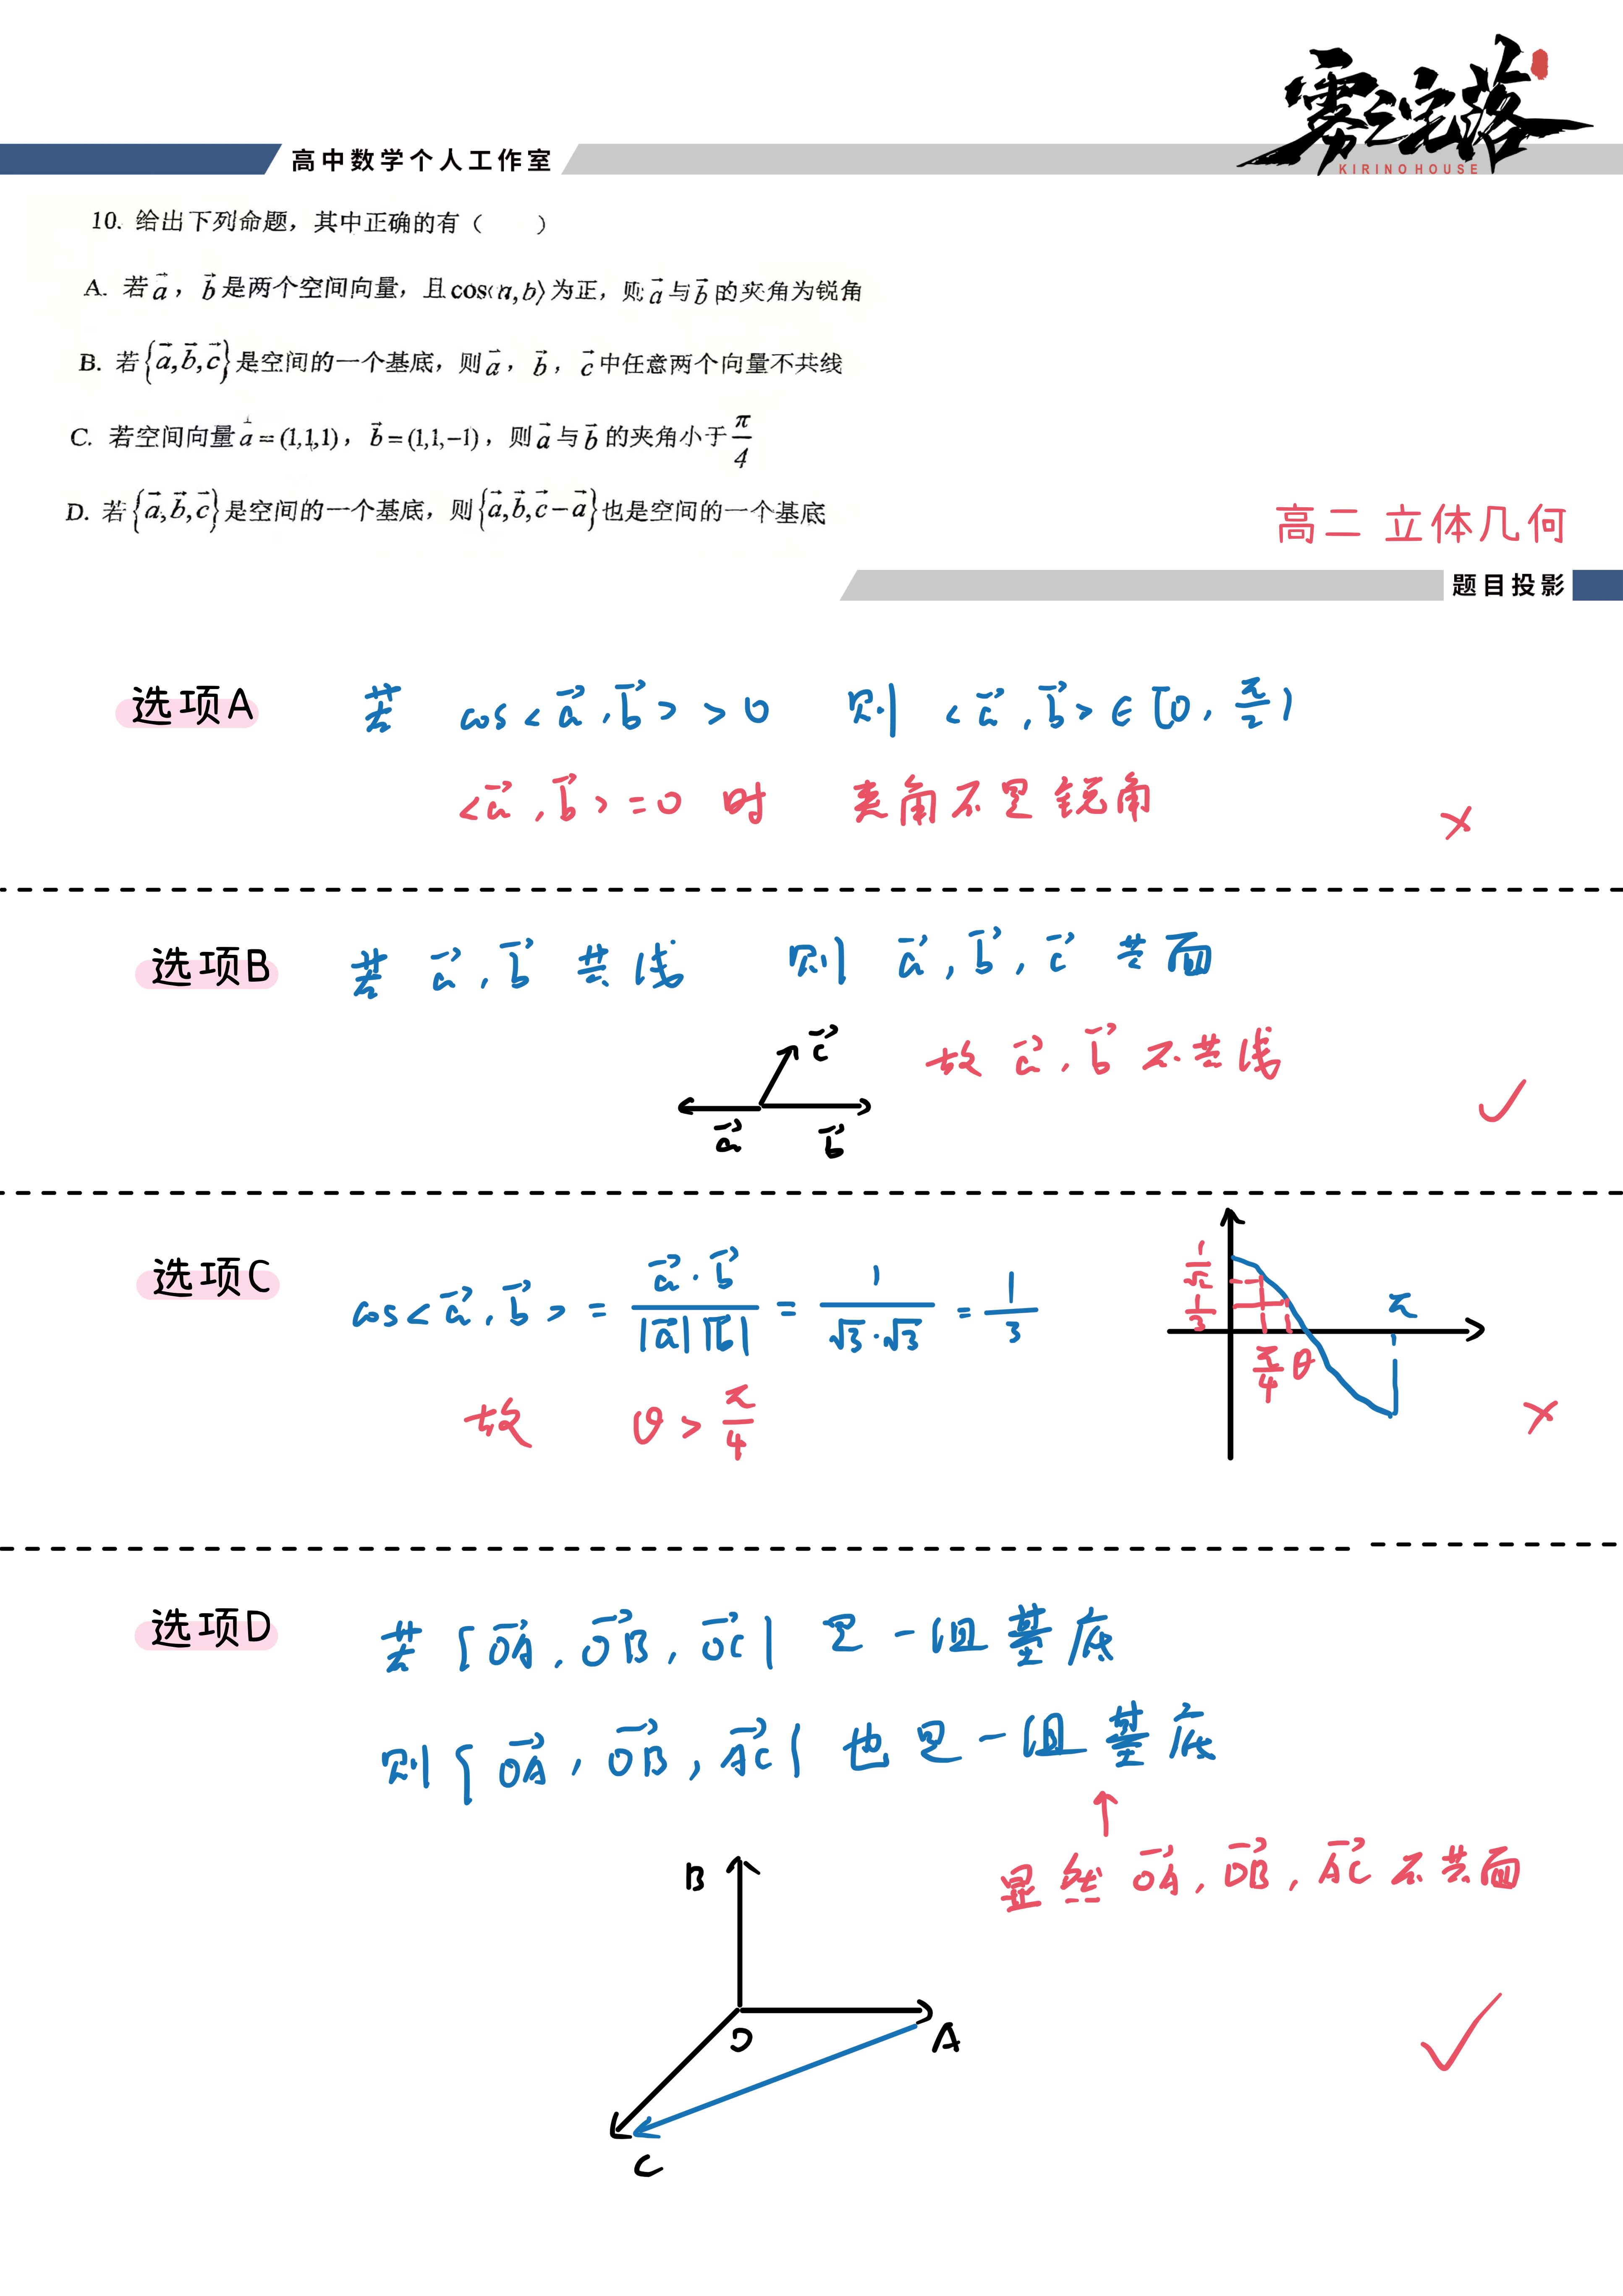 雾之宅落
KIRINO HOUSE
高中数学个人工作室
10. 给出下列命题，其中正确的有（　　）
A. 若a⃗，b⃗是两个空间向量，且cos⟨a,b⟩为正，则a⃗与b⃗的夹角为锐角
B. 若{a⃗,b⃗,c⃗}是空间的一个基底，则a⃗，b⃗，c⃗中任意两个向量不共线
C. 若空间向量a⃗=(1,1,1)，b⃗=(1,1,−1)，则a⃗与b⃗的夹角小于π/4
D. 若{a⃗,b⃗,c⃗}是空间的一个基底，则{a⃗,b⃗,c⃗−a⃗}也是空间的一个基底
高二 立体几何
题目投影
选项A 若 cos<a⃗,b⃗> > 0 则 <a⃗,b⃗> ∈ [0, π/2)
<a⃗,b⃗> = 0 时 夹角不是锐角 ×
选项B 若 a⃗,b⃗ 共线 则 a⃗,b⃗,c⃗ 共面
c⃗
故 a⃗,b⃗ 不共线 ✓
a⃗ b⃗
选项C cos<a⃗,b⃗> = a⃗·b⃗/|a⃗||b⃗| = 1/√3·√3 = 1/3
故 θ > π/4 ×
1/√2
1/3
π
π/4 θ
选项D 若{OA⃗,OB⃗,OC⃗}是一组基底
则{OA⃗,OB⃗,AC⃗}也是一组基底
↑
显然 OA⃗,OB⃗,AC⃗ 不共面
✓
B
O
A
C